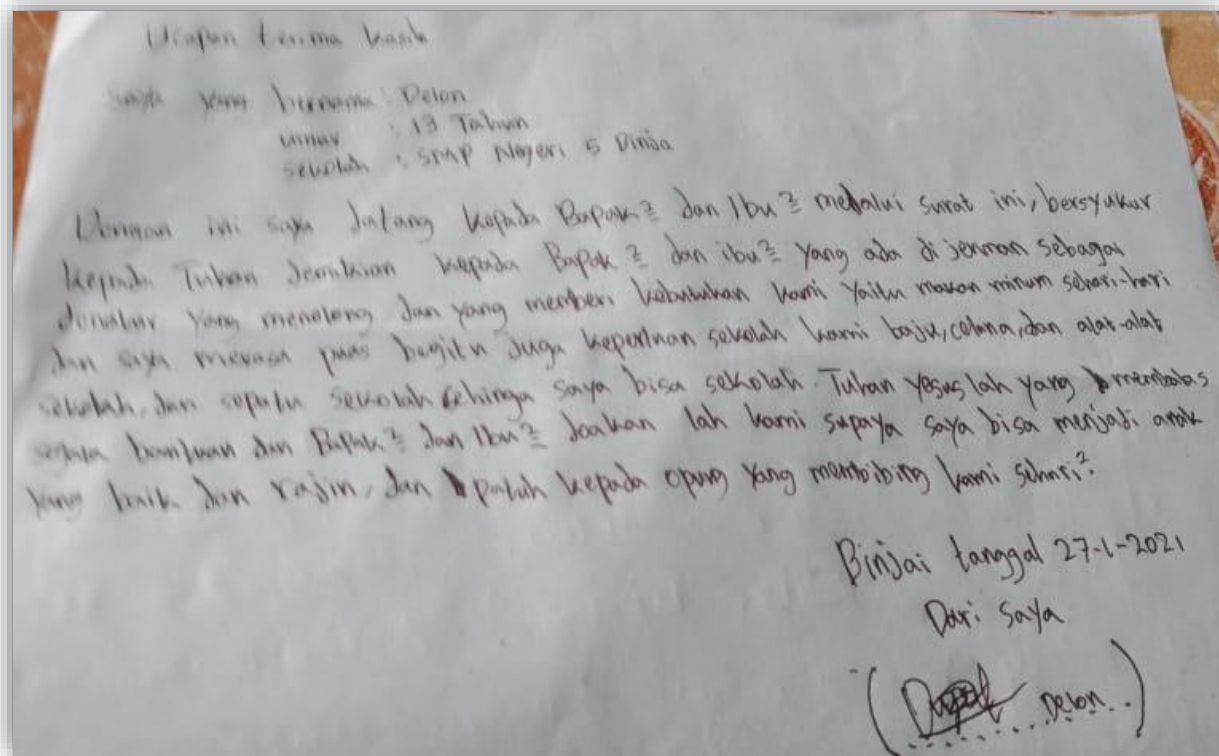 Ucapan terima kasih
saya yang bernama : Delon
umur : 13 Tahun
sekolah : SMP Negeri 5 Binjai
Dengan ini saya datang kepada Bapak² dan Ibu² melalui surat ini, bersyukur
kepada Tuhan demikian kepada Bapak² dan ibu² yang ada di jerman sebagai
donatur yang menolong dan yang memberi kebutuhan kami yaitu makan minum sehari-hari
dan saya merasa puas begitu juga keperluan sekolah kami baju, celana, dan alat-alat
sekolah, dan sepatu sekolah sehinga saya bisa sekolah. Tuhan Yesus lah yang membalas
segala bantuan dan Bapak² dan Ibu² doakan lah kami supaya saya bisa menjadi anak
yang baik dan rajin, dan patuh kepada opung yang membibing kami sehari².
Binjai tanggal 27-1-2021
Dari saya
( Delon )